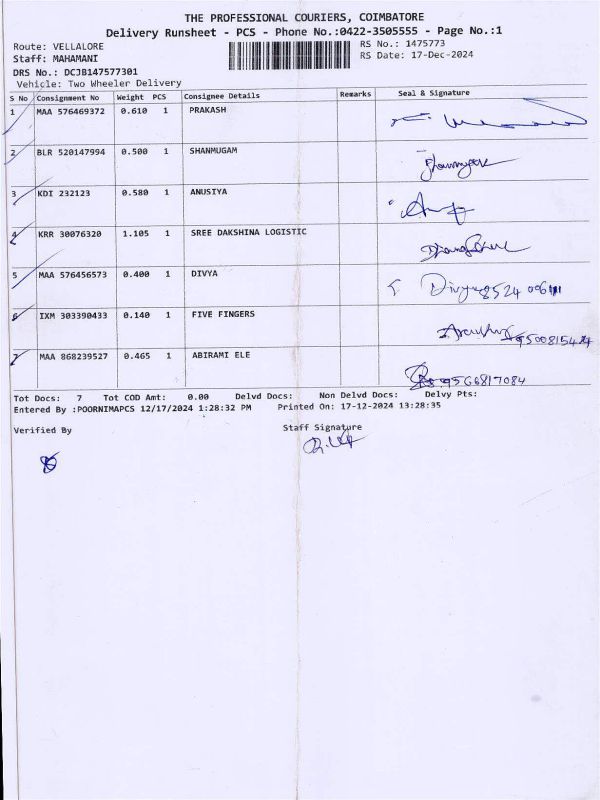 THE PROFESSIONAL COURIERS, COIMBATORE
Delivery Runsheet - PCS - Phone No.:0422-3505555 - Page No.:1
Route: VELLALORE RS No.: 1475773
Staff: MAHAMANI RS Date: 17-Dec-2024
DRS No.: DCJB147577301
Vehicle: Two Wheeler Delivery
S No Consignment No Weight PCS Consignee Details Remarks Seal & Signature
1 MAA 576469372 0.610 1 PRAKASH
2 BLR 520147994 0.500 1 SHANMUGAM
3 KDI 232123 0.580 1 ANUSIYA
4 KRR 30076320 1.105 1 SREE DAKSHINA LOGISTIC
5 MAA 576456573 0.400 1 DIVYA
Divya
6 IXM 303390433 0.140 1 FIVE FINGERS
7 MAA 868239527 0.465 1 ABIRAMI ELE
9566817084
Tot Docs: 7 Tot COD Amt: 0.00 Delvd Docs: Non Delvd Docs: Delvy Pts:
Entered By :POORNIMAPCS 12/17/2024 1:28:32 PM Printed On: 17-12-2024 13:28:35
Verified By Staff Signature